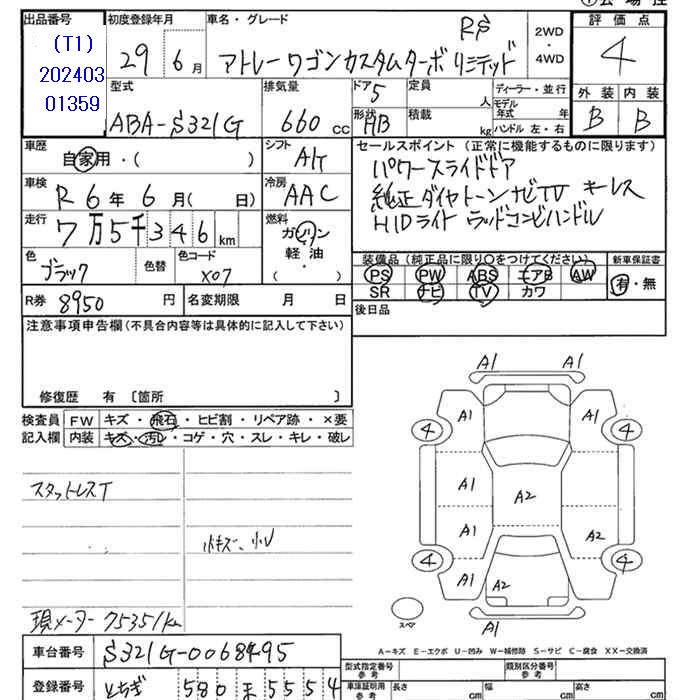 出品番号
(T1)
202403
01359
初度登録年月
29 6月
車名・グレード
RS
アトレーワゴンカスタムターボ リミテッド
2WD
・
4WD
評価点
4
外装 内装
B B
型式
ABA-S321G
排気量
660 cc
ドア 5
形状 HB
定員
人
積載
kg
ディーラー・並行
モデル
年式 年
ハンドル 左・右
車歴
自家用・( )
シフト
A/T
車検
R6年6月( 日)
冷房
AAC
走行
7万5千346km
燃料
ガソリン
軽油
( )
色
ブラック
色替
色コード
X07
R券 8950 円
名変期限 月 日
セールスポイント (正常に機能するものに限ります)
パワースライドドア
純正ダイヤトーンナビTV キーレス
HIDライト ウッドコンビハンドル
装備品(純正品に限り○をつけてください)
新車保証書
PS PW ABS エアB AW
SR ナビ TV カワ
有・無
後日品
注意事項申告欄(不具合内容等は具体的に記入して下さい)
修復歴 有〔箇所 〕
検査員
記入欄
FW キズ・飛石・ヒビ割・リペア跡・×要
内装 キズ・汚レ・コゲ・穴・スレ・キレ・破レ
スタットレスT
小キズ、小U
現メーター75351km
A1 A1
A1 A1
4 4
A1
A2
A1 A2
4 4
A1 A2
A1
スペア
A-キズ E-エクボ U-凹み W-補修跡 S-サビ C-腐食 XX-交換済
車台番号 S321G-0068495
登録番号 とちぎ 580 ま 5554
型式指定番号
参考
類別区分番号
参考
車庫証明用
参考
長さ 幅 高さ